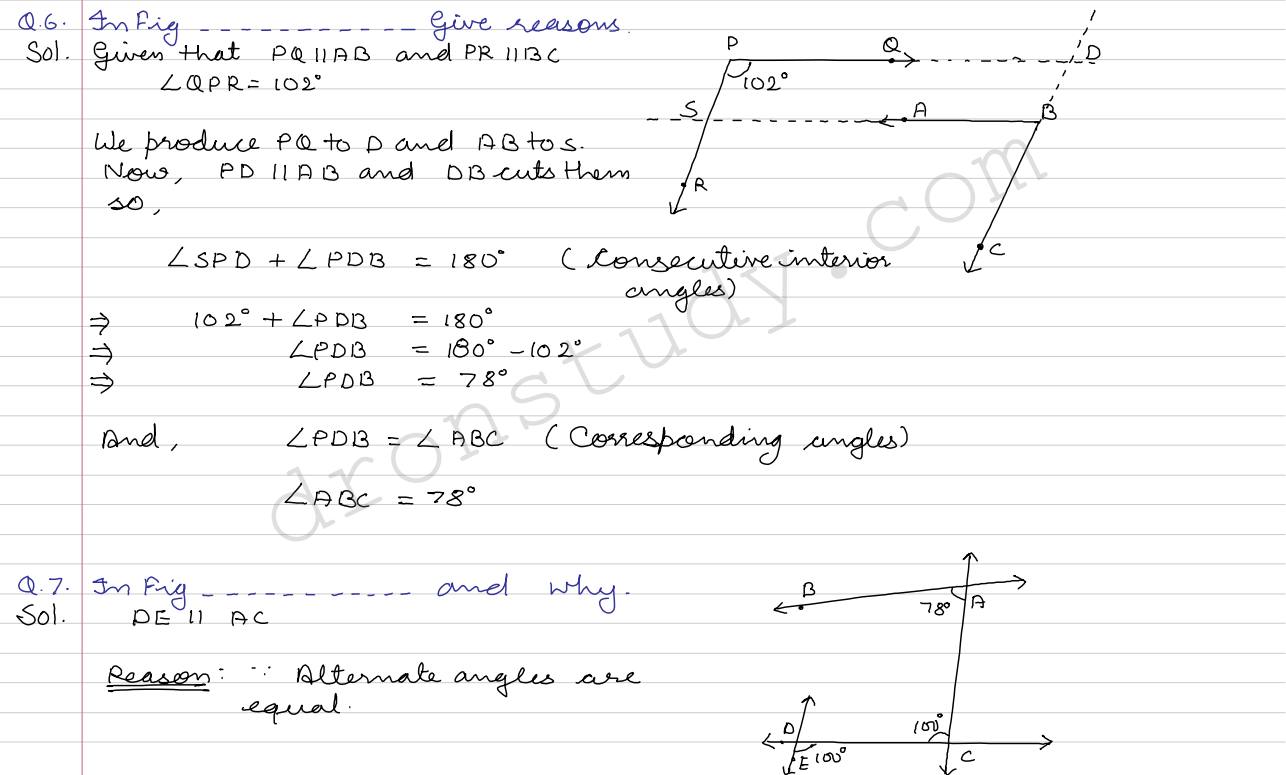 Q.6. In Fig ------------ Give reasons.
Sol. Given that PQ || AB and PR || BC
∠QPR = 102°
We produce PQ to D and AB to S.
Now, PD || AB and DB cuts them
so,
∠SPD + ∠PDB = 180° (Consecutive interior
angles)
⇒ 102° + ∠PDB = 180°
⇒ ∠PDB = 180° - 102°
⇒ ∠PDB = 78°
And, ∠PDB = ∠ABC (Corresponding angles)
∠ABC = 78°
P
Q
D
102°
S
A
B
R
C
Q.7. In Fig ------------ and why.
Sol. DE || AC
Reason: ∵ Alternate angles are
equal.
B
78°
A
D
100°
E 100°
C
dronstudy.com